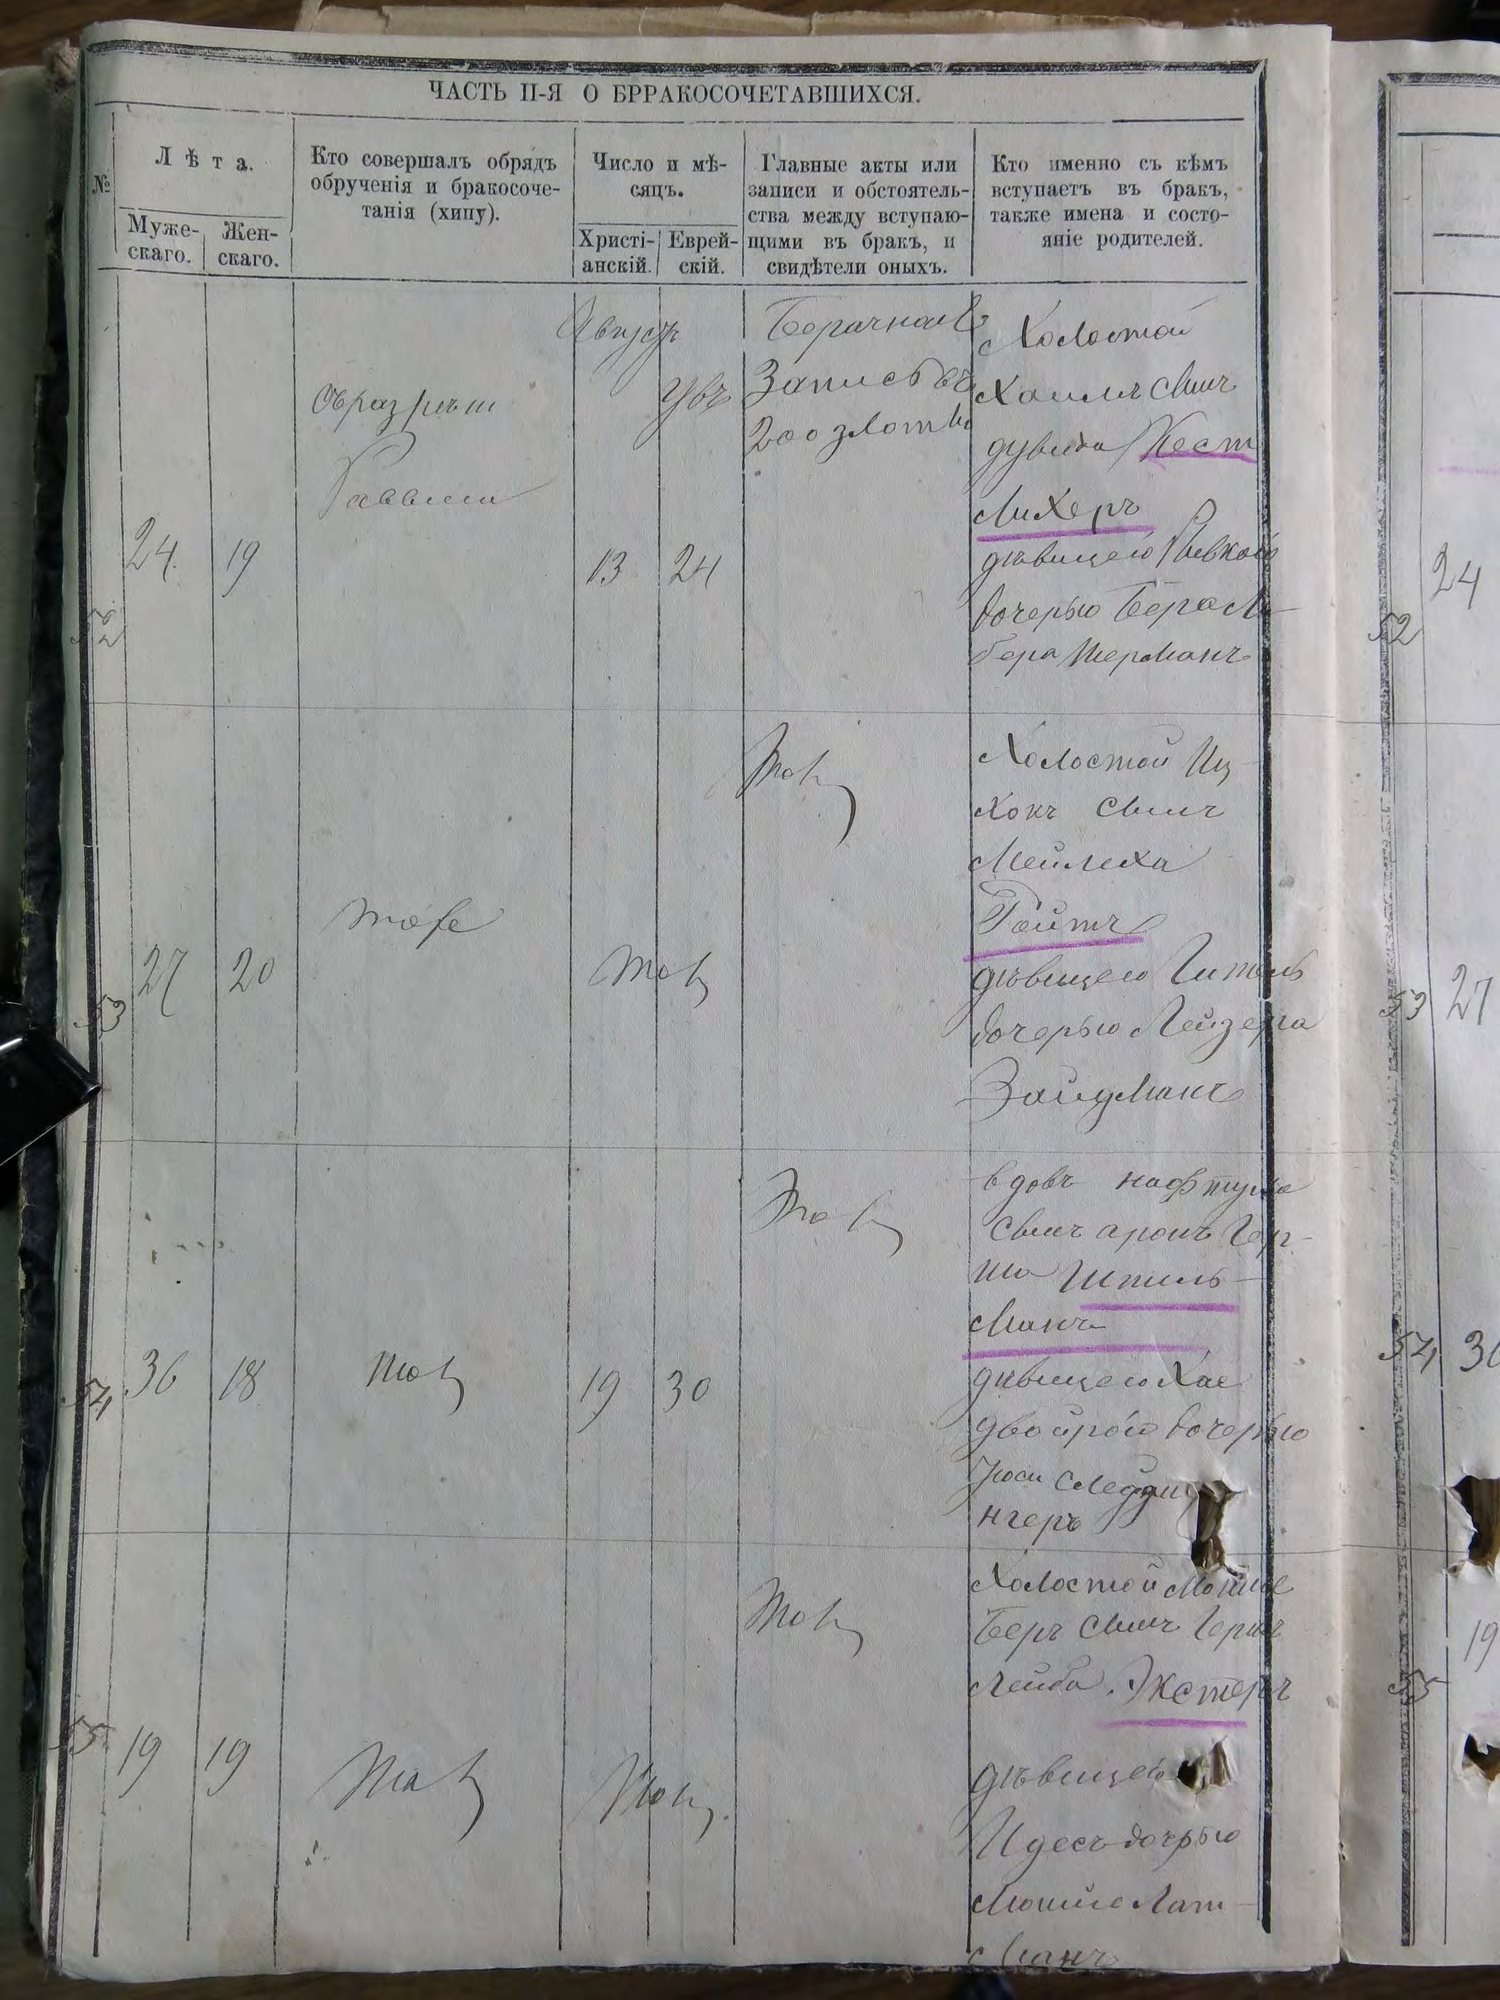 ЧАСТЬ II-Я О БРРАКОСОЧЕТАВШИХСЯ.
№
Лѣта.
Муже-
скаго.
Жен-
скаго.
Кто совершалъ обрядъ
обрученія и бракосоче-
танія (хипу).
Число и мѣ-
сяцъ.
Христі-
анскій.
Еврей-
скій.
Главные акты или
записи и обстоятель-
ства между вступаю-
щими въ бракъ, и
свидѣтели оныхъ.
Кто именно съ кѣмъ
вступаетъ въ бракъ,
также имена и состо-
яніе родителей.
52
24
19
Раввинъ
Августъ
13
24
Запись въ
200 злоты
Холостой
Хаимъ сынъ
дувида Кест
лихеръ
дѣвицею Ривкою
дочерью Бера Ли-
бера Шерманъ
53
27
20
тоже
тож
тож
Холостой Иц-
хокъ сынъ
Мейлеха
Гойтъ
дѣвицею Гитель
дочерью Лейзера
Зайдманъ
54
36
18
тож
19
30
тож
вдовъ нафтула
сынъ аронъ Гер-
ша Шпиль-
манъ
дѣвицею Хае
двойрой дочерью
нгеръ
55
19
19
тож
тож
тож
Холостой Мошке
Беръ сынъ Гершъ
лейба Экстеръ
дѣвицею
Идесъ дочрью
Мошке Лат-
манъ
24
52
53
27
54
19
55